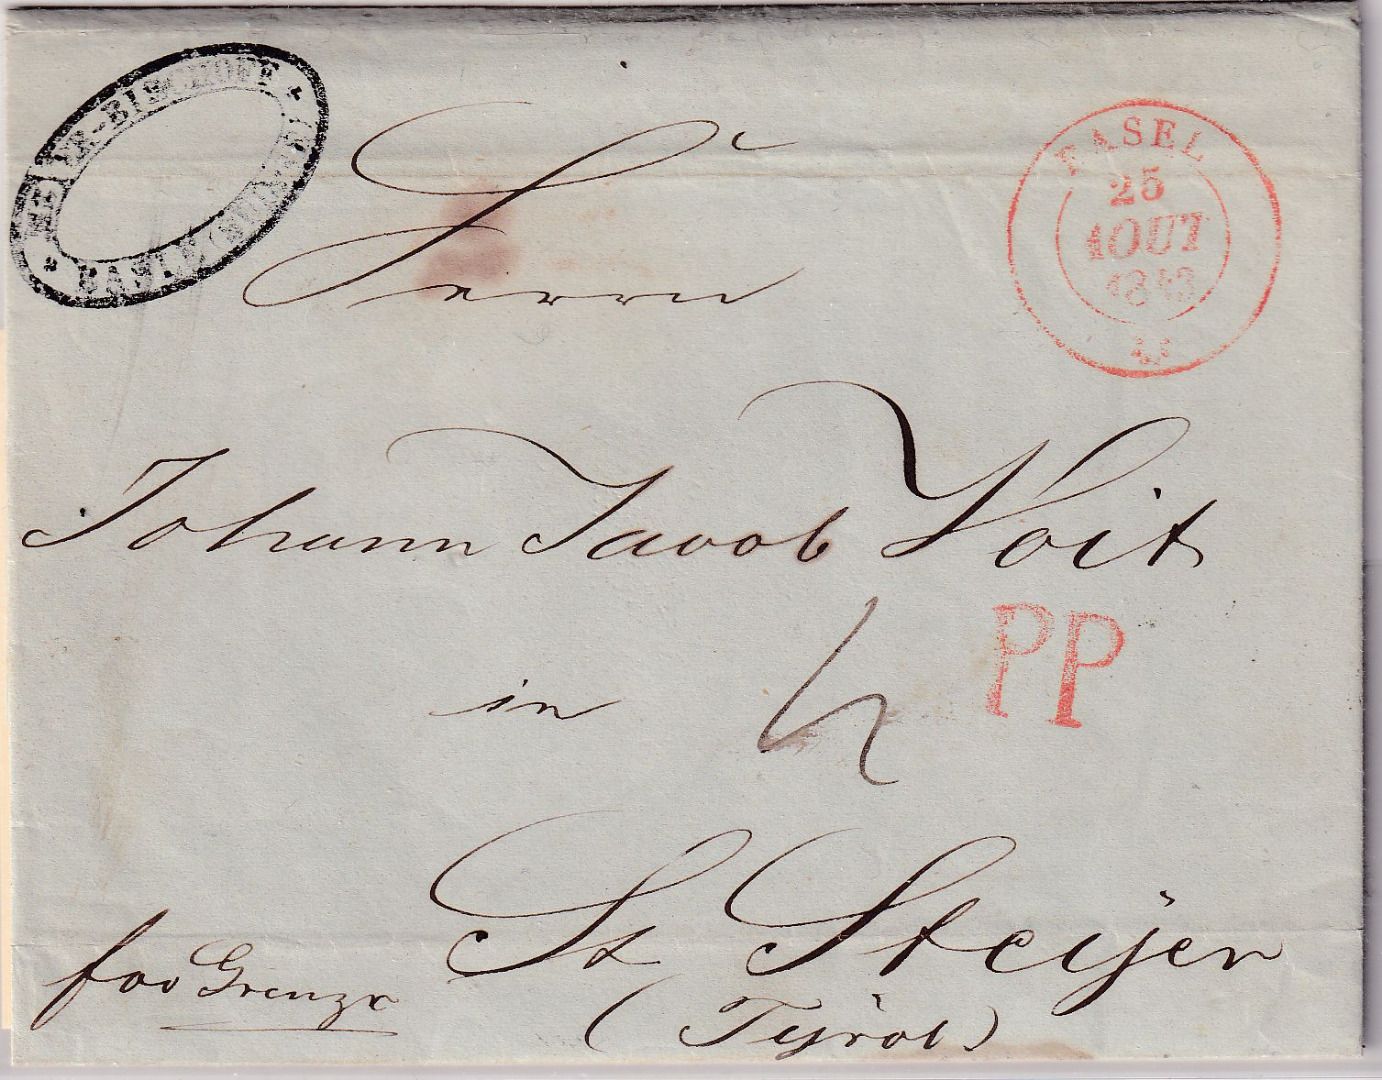 MEYER-BISCHOFF
BASEL
BASEL
25
AOUT
1843
Herrn
Johann Jacob Voit
in
PP
St. Steijer
(Tyrol)
fco Grenze